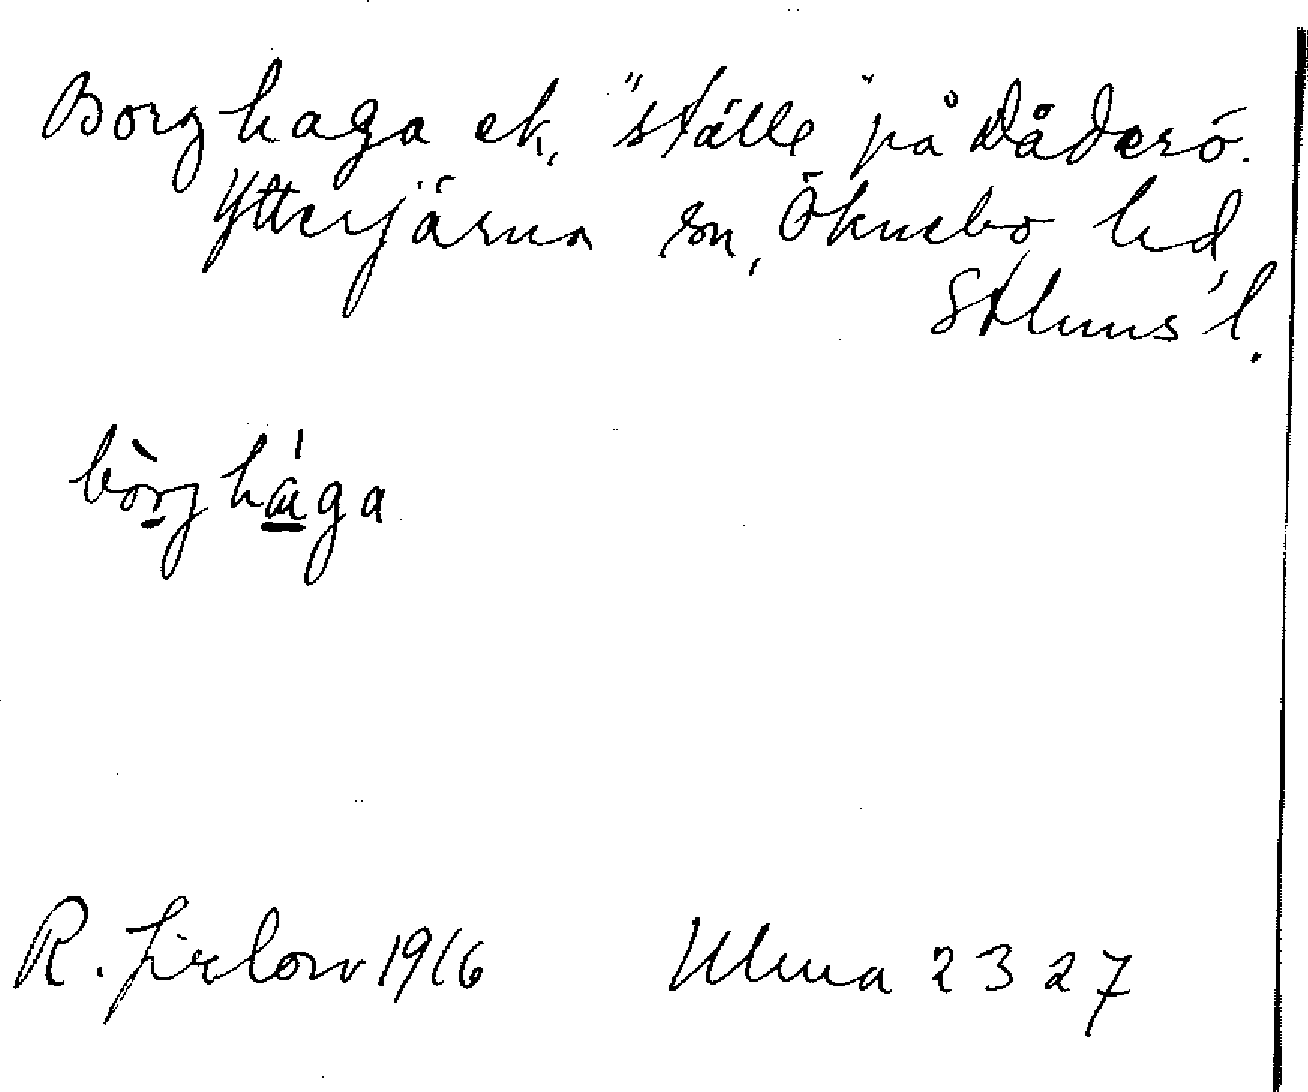 Borghaga ek, "ställe" på Dåderö.
Ytterjärna sn, Öknebo hd,
Sthlms l.
bòrghága
R. Jirlow 1916 Ulma 2327